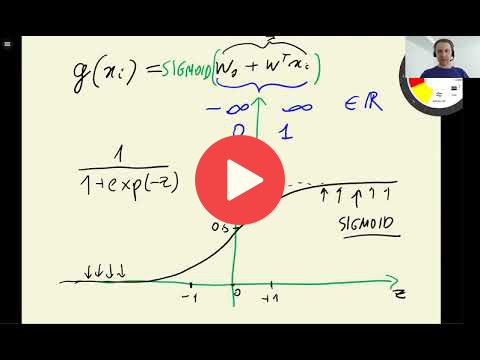 g(xᵢ) = SIGMOID(w₀ + wᵀxᵢ)
-∞ ∞ ∈ ℝ
0 1
1
1+exp(-z)
SIGMOID
0.5
-1 0 +1 z